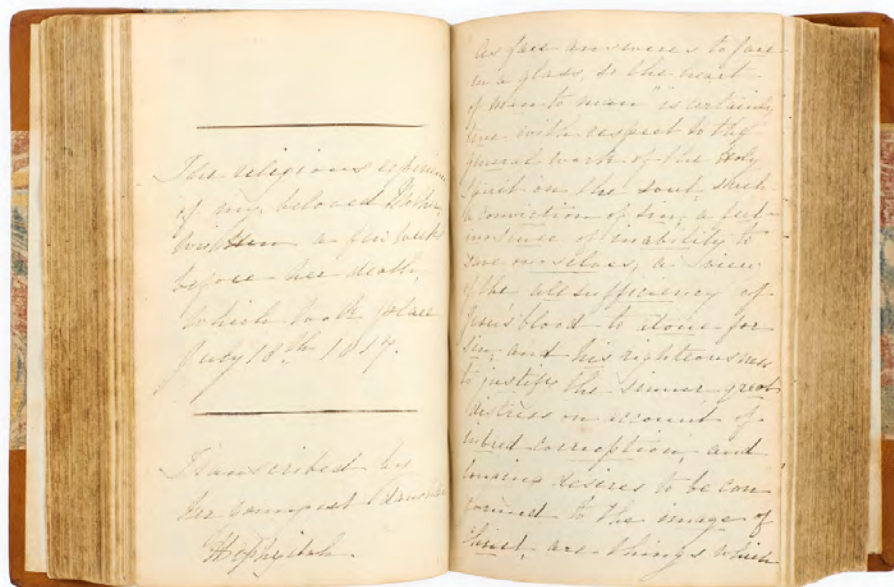 The religious experience
of my beloved Mother,
written a few weeks
before her death,
which took place
July 13th 1817.
Transcribed by
her youngest daughter
Hephzibah.
as face answers to face
in a glass, so the heart
of man to man" is certainly
true with respect to the
general work of the Holy
Spirit on the soul, such
a conviction of sin, a feel-
ing sense of inability to
save ourselves, a view
of the all sufficiency of
Jesus' blood to atone for
sin, and his righteousness
to justify the sinner, great
distress on account of
inbred corruption, and
longing desires to be con
formed to the image of
Christ, are things which